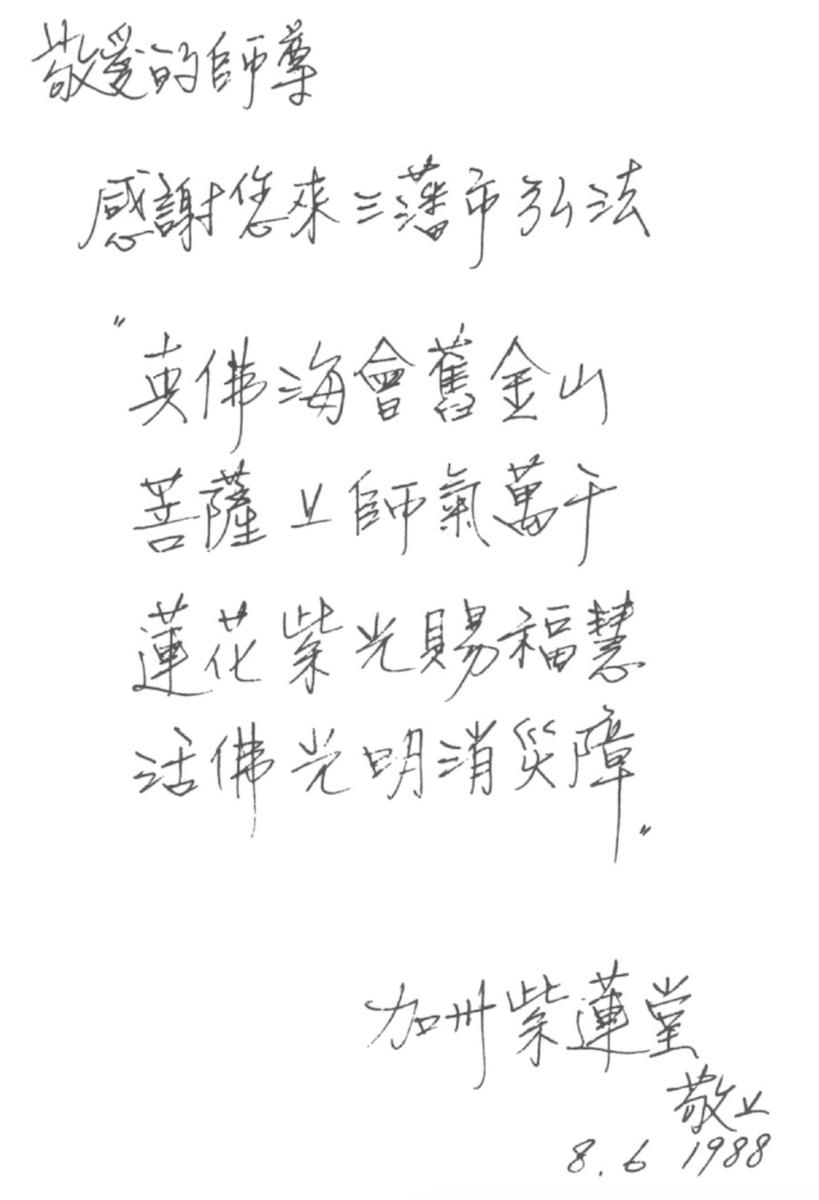 敬愛的師尊
感謝您來三藩市弘法
"真佛海會舊金山
菩薩上師氣萬千
蓮花紫光賜福慧
活佛光明消災障"
加州紫蓮堂
敬上
8.6 1988